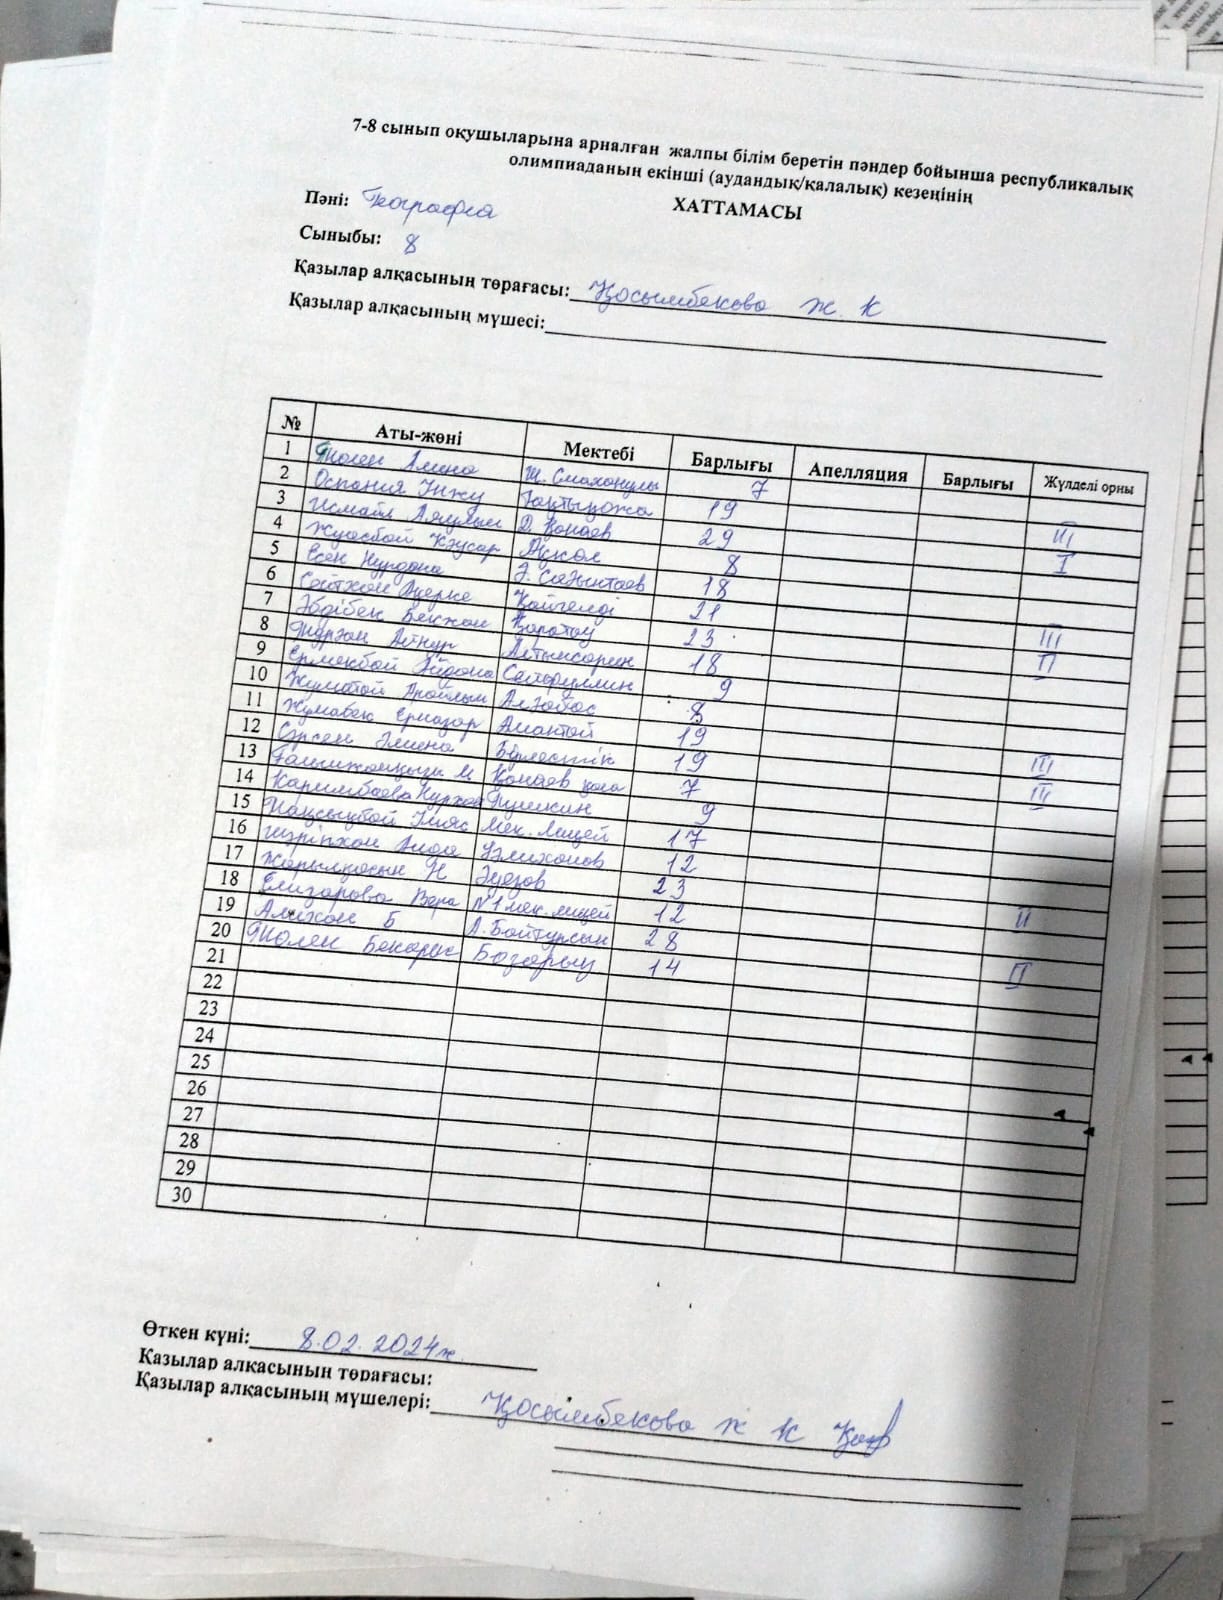 7-8 сынып оқушыларына арналған жалпы білім беретін пәндер бойынша республикалық
олимпиаданың екінші (аудандық/қалалық) кезеңінің
ХАТТАМАСЫ
Пәні: География
Сыныбы: 8
Қазылар алқасының төрағасы: Қосымбекова Ж. К
Қазылар алқасының мүшесі:
№ Аты-жөні Мектебі Барлығы Апелляция Барлығы Жүлделі орны
1 Төлен Амина Ш. Смаханұлы 7
2 Оспания Інжу 19 III
3 Исмайл Аяулым Д. Қонаев 29 I
4 Жуасбай Кәусар Ақкөл 8
5 Есен Нурдана Ә. Сағынтаев 18
6 Сейтхан Ақерке Қойгелді 21 III
7 Әбдібек Бекжан Қаратау 23 II
8 Айнур Алтынсарин 18
9 Ермекбай Айдана 9
10 Жуматай Арайлым 8
11 Жумабек Ерназар Амантай 19 III
12 Сәрсен Әмина Бірлестік 19 III
13 Ғалымжанқызы М Қонаев 7
14 Каримбаева Пушкин 9
15 Мек. Лицей 17
16 Уәлиханов 12
17 Жарылқасын Н Әуезов 23 II
18 Елизарова Вера №1 мек. лицей 12
19 Алихан Б А. Байтурсын 28 II
20 Төлен Бекарыс Базарық 14
21
22
23
24
25
26
27
28
29
30
Өткен күні: 8.02.2024ж
Қазылар алқасының төрағасы:
Қазылар алқасының мүшелері: Қосымбекова Ж К